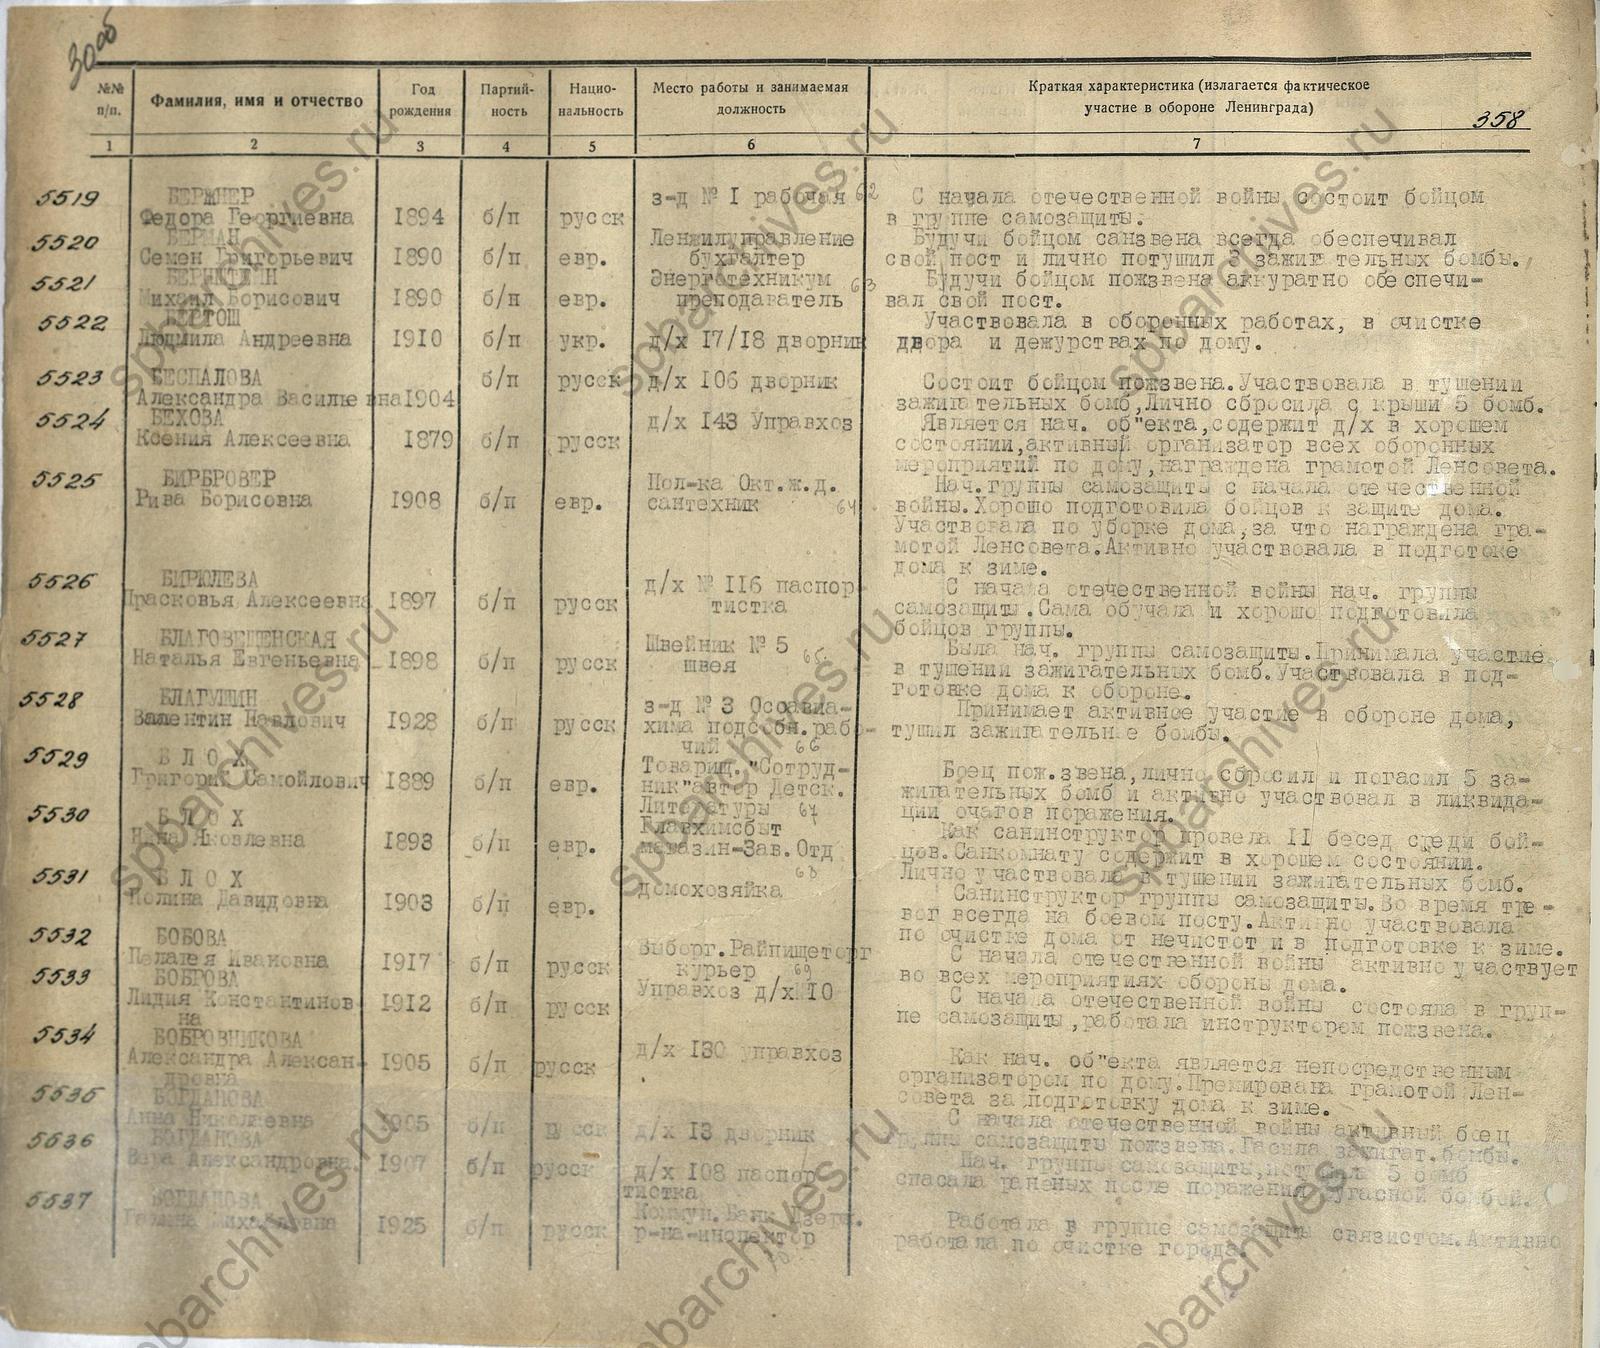 30 об
№№ п/п.
Фамилия, имя и отчество
Год рождения
Партий-ность
Нацио-нальность
Место работы и занимаемая должность
Краткая характеристика (излагается фактическое
участие в обороне Ленинграда)
358
1 2 3 4 5 6 7
5519 БЕРЖНЕР з-д № I рабочая 62 С начала отечественной войны состоит бойцом
Федора Георгиевна I894 б/п русск в группе самозащиты.
5520 БЕРМАН Ленжилуправление Будучи бойцом санзвена всегда обеспечивал
Семен Григорьевич I890 б/п евр. бухгалтер свой пост и лично потушил 3 зажигательных бомбы.
5521 БЕРНШТЕЙН Энерготехникум 63 Будучи бойцом пожзвена аккуратно обеспечи-
Михаил Борисович I890 б/п евр. преподаватель вал свой пост.
5522 БЕРТОШ Участвовала в оборонных работах, в очистке
Людмила Андреевна I9I0 б/п укр. д/х I7/I8 дворник двора и дежурствах по дому.
5523 БЕСПАЛОВА б/п русск д/х I06 дворник Состоит бойцом пожзвена.Участвовала в тушении
Александра Васильевна I904 зажигательных бомб,Лично сбросила с крыши 5 бомб.
5524 БЕХОВА д/х I43 Управхоз Является нач. об"екта,содержит д/х в хорошем
Ксения Алексеевна I879 б/п русск состоянии,активный организатор всех оборонных
мероприятий по дому,награждена грамотой Ленсовета.
5525 БИРБРОВЕР Пол-ка Окт.ж.д. Нач.группы самозащиты с начала отечественной
Рива Борисовна I908 б/п евр. сантехник 64 войны.Хорошо подготовила бойцов к защите дома.
Участвовала по уборке дома,за что награждена гра-
мотой Ленсовета.Активно участвовала в подготоке
дома к зиме.
5526 БИРЮЛЕВА д/х № II6 паспор- С начала отечественной войны нач. группы
Прасковья Алексеевна I897 б/п русск тистка самозащиты.Сама обучала и хорошо подготовила
бойцов группы.
5527 БЛАГОВЕЩЕНСКАЯ Швейник № 5 Была нач. группы самозащиты.Принимала участие
Наталья Евгеньевна I898 б/п русск швея 65. в тушении зажигательных бомб.Участвовала в под-
готовке дома к обороне.
5528 БЛАГУШИН з-д № 3 Осоавиа- Принимает активное участие в обороне дома,
Валентин Павлович I928 б/п русск хима подсобн.рабо- тушил зажигательные бомбы.
чий 66
5529 Б Л О Х Товарищ."Сотруд- Боец пож.звена,лично сбросил и погасил 5 за-
Григорий Самойлович I889 б/п евр. ник"автор Детск. жигательных бомб и активно участвовал в ликвида-
Литературы 67 ции очагов поражения.
5530 Б Л О Х Главхимсбыт Как санинструктор провела II бесед среди бой-
Яковлевна I893 б/п евр. магазин-Зав.Отд цов.Санкомнату содержит в хорошем состоянии.
68 Лично участвовала в тушении зажигательных бомб.
5531 Б Л О Х домохозяйка Санинструктор группы самозащиты.Во время тре-
Полина Давидовна I903 б/п евр. вог всегда на боевом посту.Активно участвовала
по очистке дома от нечистот и в подготовке к зиме.
5532 БОБОВА Выборг.Райпищеторг С начала отечественной войны активно участвует
Пелагея Ивановна I9I7 б/п русск курьер 69 во всех мероприятиях обороны дома.
5533 БОБРОВА Управхоз д/х I0 С начала отечественной войны состояла в груп-
Лидия Константинов- I9I2 б/п русск пе самозащиты,работала инструктором пожзвена.
на
5534 БОБРОВНИКОВА д/х I30 управхоз Как нач. об"екта является непосредственным
Александра Алексан- I905 б/п русск организатором по дому.Премирована грамотой Лен-
дровна совета за подготовку дома к зиме.
5535 БОГДАНОВА С начала отечественной войны активный боец
Анна Николаевна I905 б/п русск д/х I3 дворник группы самозащиты пожзвена.Гасила зажигат.бомбы.
5536 БОГДАНОВА Нач. группы самозащиты,потушила 5 бомб
Вера Александровна I907 б/п русск д/х I08 паспор- спасала раненых после поражения фугасной бомбой.
тистка
5537 БОГДАНОВА Коммун.Банк Дзерж. Работала в группе самозащиты связистом.Активно
Галина Михайловна I925 б/п русск р-на-инспектор работала по очистке города.
70.
spbarchives.ru